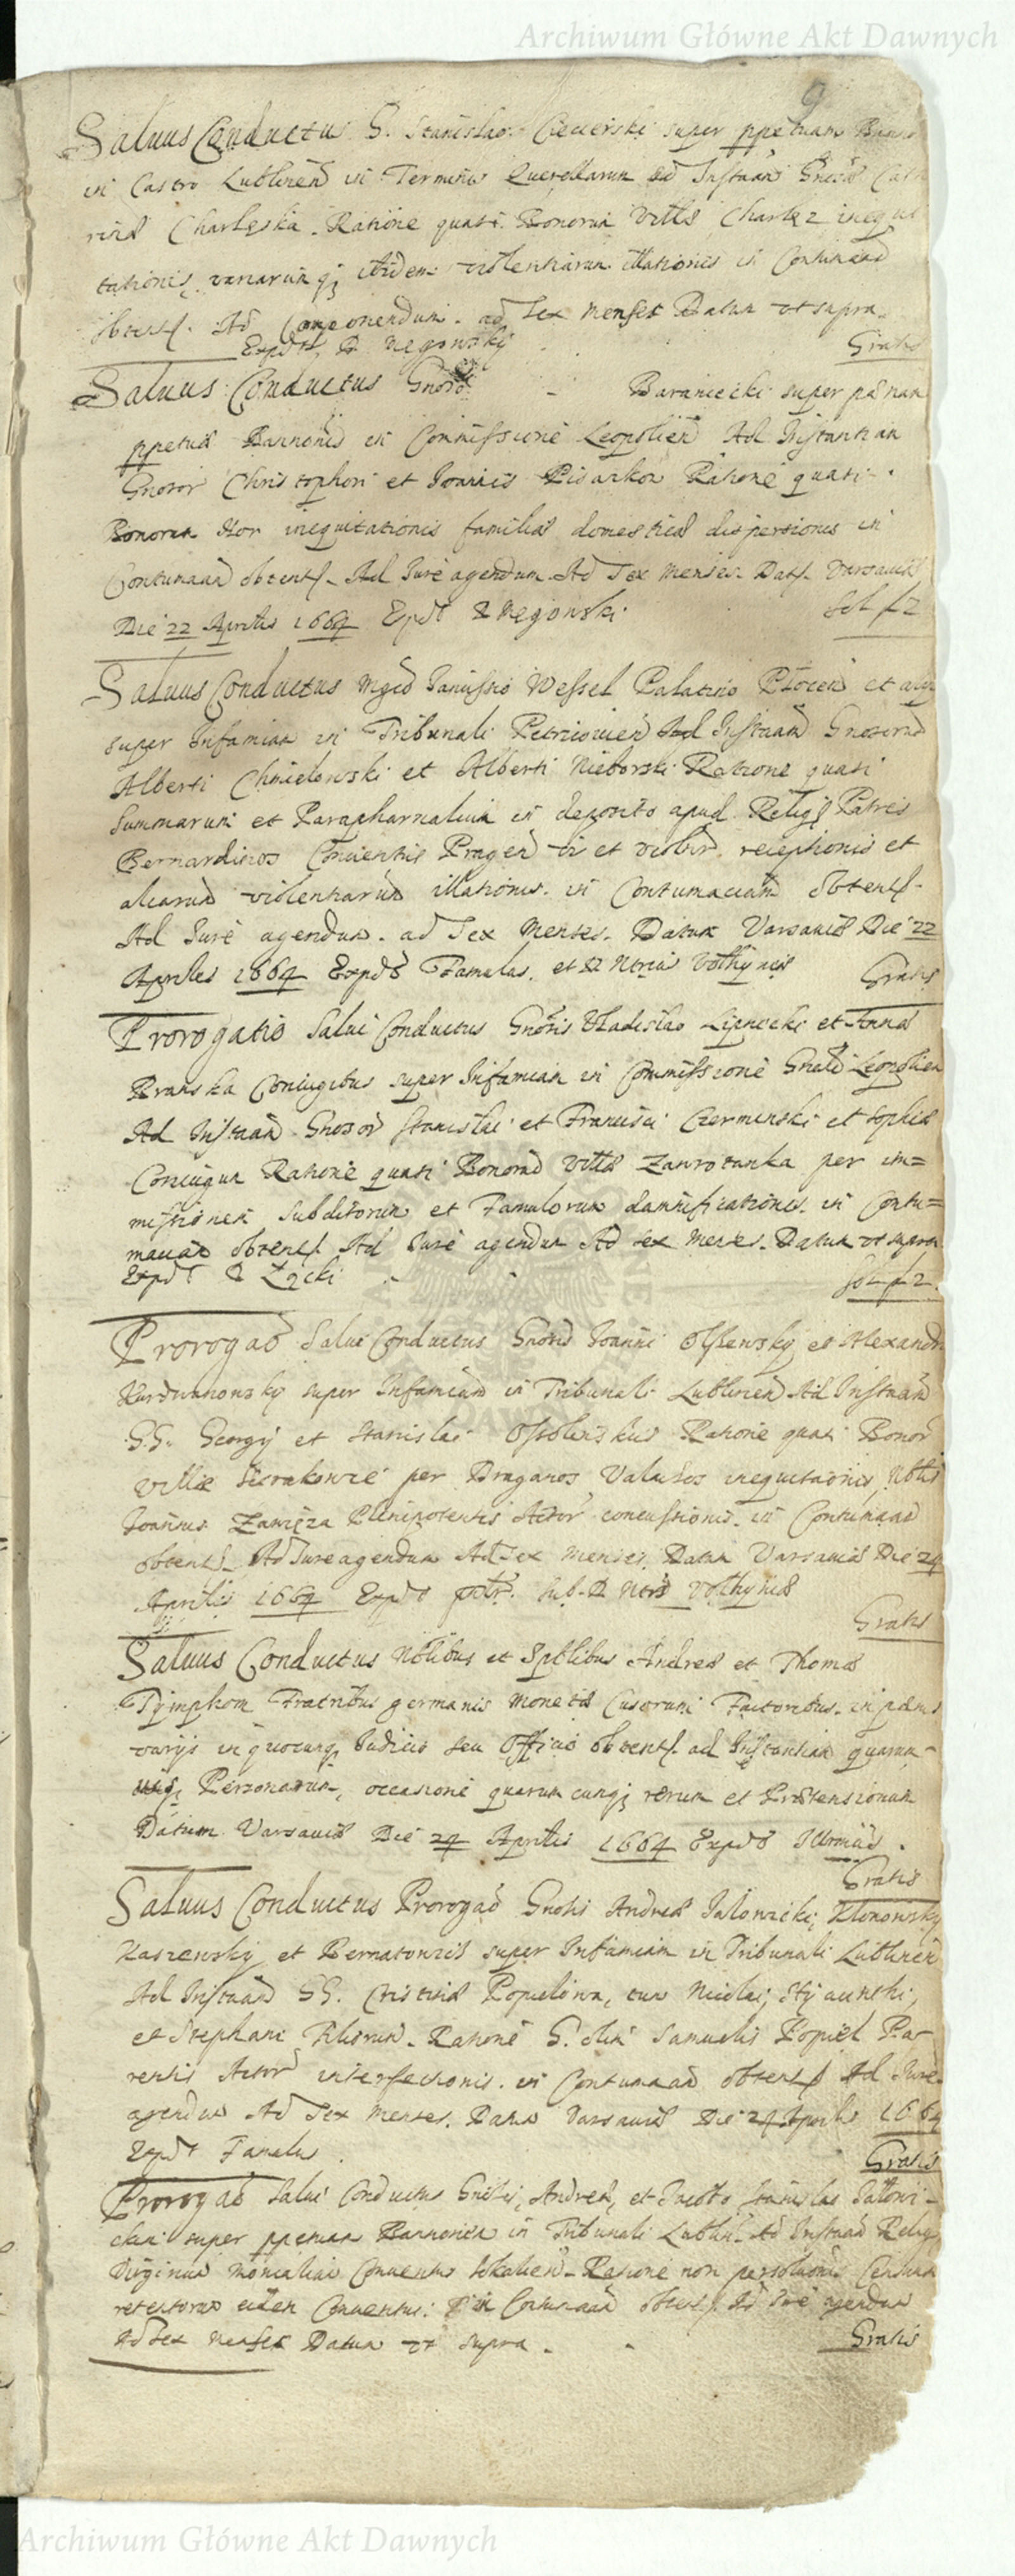 Archiwum Główne Akt Dawnych
9
Saluus Conductus G. Stanislao Ciecierski super ppetuam Bann
in Castro Lublinen in Terminis Querellarum ad Instaan Gnosa Cat
rina Charlęska Ratione quasi Bonorum Villa Charlęz inequi
tationis, variarumqz ibidem violentiarum illationis in Contumaad
obtent. Ad Componendum ad Sex Menses Datum vt supra
Expdt R Negowsky
Gratis
Saluus Conductus Gnoso - Baraniecki super pænam
ppetua Bannonis in Commissione Leopolien Ad Instantian
Gnosor Christophori et Joannis Pisarkow Ratione quasi
Bonorum Hor inequitationis familia domestica dispersionis in
Contumaad obtent. Ad Jure agendum Ad Sex Menses. Dat. Varsauia
Die 22 Aprilis 1664 Expdt R Negowski
Sol f 2
Saluus Conductus Mgco Janussio Wessel Palatino Płocen et
super Infamian in Tribunali Petricouien Ad Instaan Gnosorum
Alberti Chmielowski et Alberti Nieborski Ratione quasi
Summarum et Parapharnalium in deposito apud Religs Patres
Bernardinos Conuentus Pragen vi et receptionis et
aliarum violentiarum illationis in Contumaciam obtent.
Ad Jure agendum ad Sex Menses. Datum Varsauia Die 22
Aprilis 1664 Expdt Famulas. et R Ntriu Volhynia
Gratis
Prorogatio Salui Conductus Gnosis Vladislao Lipnicki et Anna
Branska Coniugibus super Infamian in Commissione Gnali Leopolien
Ad Instaan Gnosor Stanislai et Francisci Czerminski et Sophia
Coniugum Ratione quasi Bonorum Villa Zawrotanka per im=
missionem Subditorum et Famulorum damnificationis in Contu=
maciam obtent. Ad Jure agendum Ad sex Menses. Datum vt supra
Expdt R Łącki
Sol f 2
Prorogao Salui Conductus Gnosis Joanni Olszewsky et Alexandr
Kurdwanowsky super Infamiam in Tribunali Lublinen Ad Instaan
GG. Georgij et Stanislai Ossolinskich Ratione quasi Bonor
Villæ Sierakowie per Draganos Valachos inequitationis, Nobis
Joannis Zawisza Plenipotentis Actor concussionis in Contumaad
obtent. Ad Jure agendum Ad Sex Menses Datum Varsauia Die 24
Aprilis 1664 Expdt R Ntris Volhynia
Gratis
Saluus Conductus Nobilibus et Sptlibus Andrea et Thoma
Tymphom Fratribus germanis Moneta Cusorum Factoribus in pænis
varijs in quocunqz Judicio seu Officio obtent. ad Instantian quarum
Personarum, occasione quarum cunqz rerum et Prætensionum
Datum Varsauia Die 24 Aprilis 1664 Expdt
Gratis
Saluus Conductus Prorogao Gnosis Andrea Jałowicki, Klonowsky
Kaszewsky et Bernatowicz super Infamian in Tribunali Lublinen
Ad Instaan GG. Popielowa, tum Nicolai,
et Stephani Ratione G. olim Samuelis Popiel Pa-
rentis Actor interfectionis in Contumaad obtent Ad Jure
agendum Ad Sex Menses. Datum Varsauia Die 24 Aprilis 1664
Expdt Famulus
Gratis
Prorogao Salui Conductus Gnosis, Andrea, et Jacobo Stanislao Jałowi-
cki super ppetuam Bannonen in Tribunali Lublin. Ad Instaan Relig
Virginum Monialium Conuentus Sokalien Ratione non persolutionis Census
retentorum eidem Conuentus in Contumaad obtent. Ad Jure agendum
Ad sex Menses Datum vt supra
Gratis
Archiwum Główne Akt Dawnych